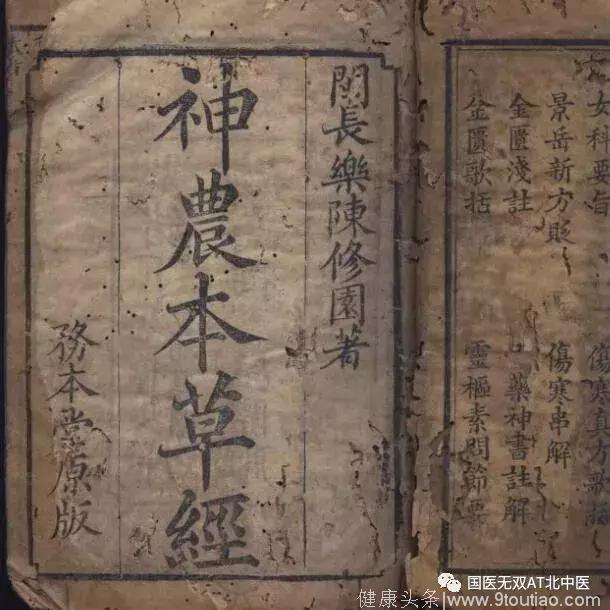 女科要旨
傷寒真方歌
景岳新方貶
傷寒串解
金匱淺註
藥神書註解
金匱歌括
靈樞素問節要
閩長樂陳修園著
神農本草經
務本堂原版
国医无双AT北中医
健康头条/www.9toutiao.com